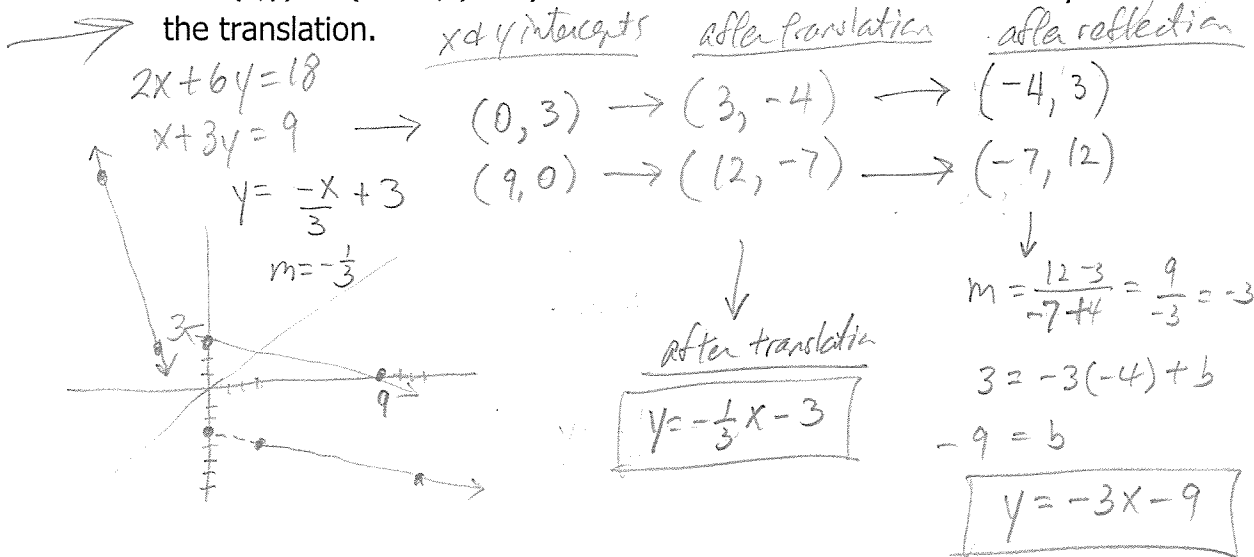 the translation.
x & y intercepts after translation after reflection
2x + 6y = 18
x + 3y = 9 → (0, 3) → (3, -4) → (-4, 3)
(9, 0) → (12, -7) → (-7, 12)
y = -x/3 + 3
m = -1/3
m = (12 - 3)/(-7 + 4) = 9/-3 = -3
3
9
after translation
y = -1/3 x - 3
3 = -3(-4) + b
-9 = b
y = -3x - 9